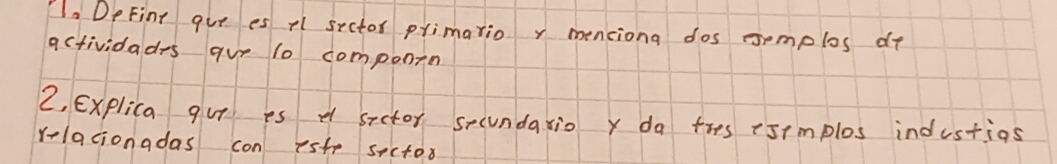 1. Define que es el sector primario y menciona dos ejemplos de
actividades que lo componen
2. Explica que es el sector secundario y da tres ejemplos industias
relacionadas con este sector